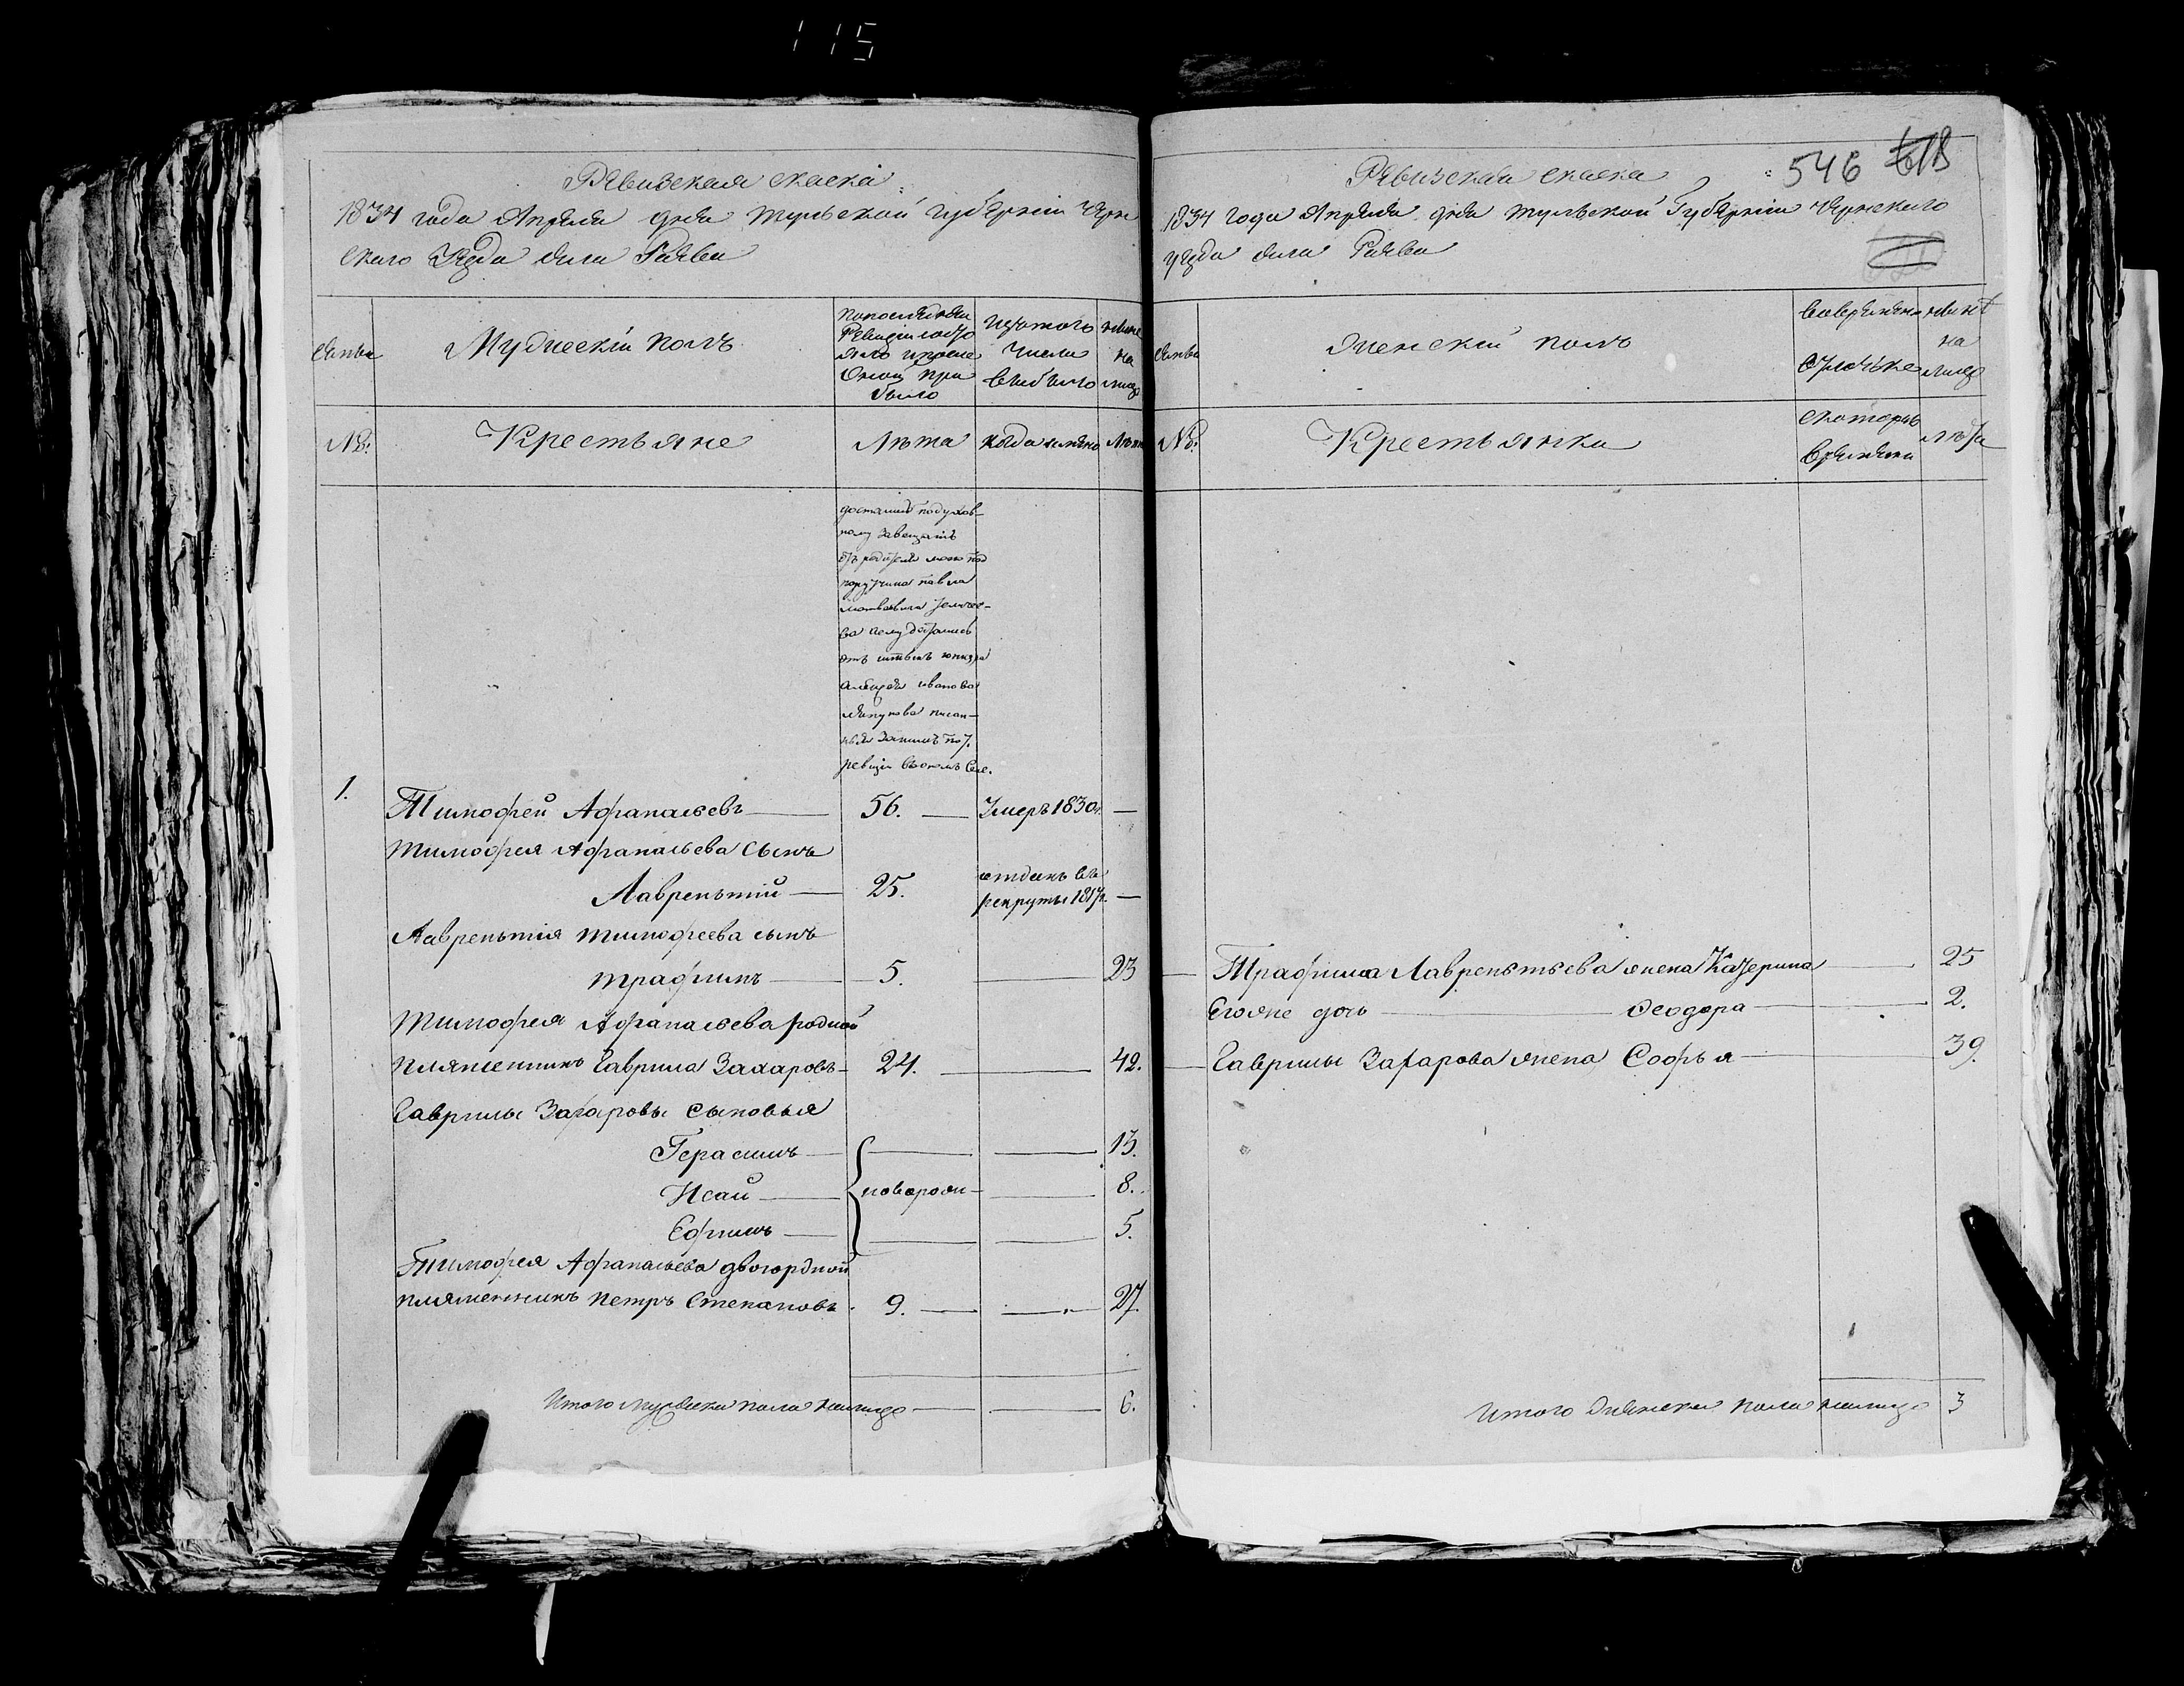 115
Ревизская скаска
1834 года Апреля дня Тульской губернии Черн
скаго Уезда села
семьи
Мужескій полъ
По последней
Ревизіи состо
яло и после
оной при
было
Изъ того
числа
выбыло
ныне
на
лицо
№:
Крестьяне
Лѣта
когда именно
Лѣта
достались по духов-
ному завещанію
отъ родителя моего под
порутчика Павла
Матвеевича
ва а ему достались
отъ
Алексея Иванова
писан-
ные за нимъ по 7.
ревизіи въ ономъ селе.
1.
Тимофей Афанасьевъ
56.
Умеръ 1830г.
—
Тимофея Афанасьева сынъ
Лаврентий
25.
отданъ въ
рекруты 181
—
Лаврентія Тимофеева сынъ
Трафимъ
5.
23
Тимофея Афанасьева родной
племенникъ Гаврила Захаровъ
24.
42.
Гаврилы Захаровы сыновья
Герасимъ
13.
Исай
новорож-
8.
Ефимъ
5.
Тимофея Афанасьева двоюрдной
племенникъ Петръ Степановъ
9.
27.
Итого мужеска пола налицо
6.
Ревизская скаска
546 618
1834 года Апреля дня Тульской Губерніи Чернскаго
уезда села
семьи
Женскій полъ
Во временной
отлучке
ныне
на
лицо
№:
Крестьянки
с котораго
времяни
лѣта
Трафима Лаврентьева жена Катерина
25
Его же дочь Феодора
2.
Гаврилы Захарова жена Софья
39.
Итого женска пола налицо
3